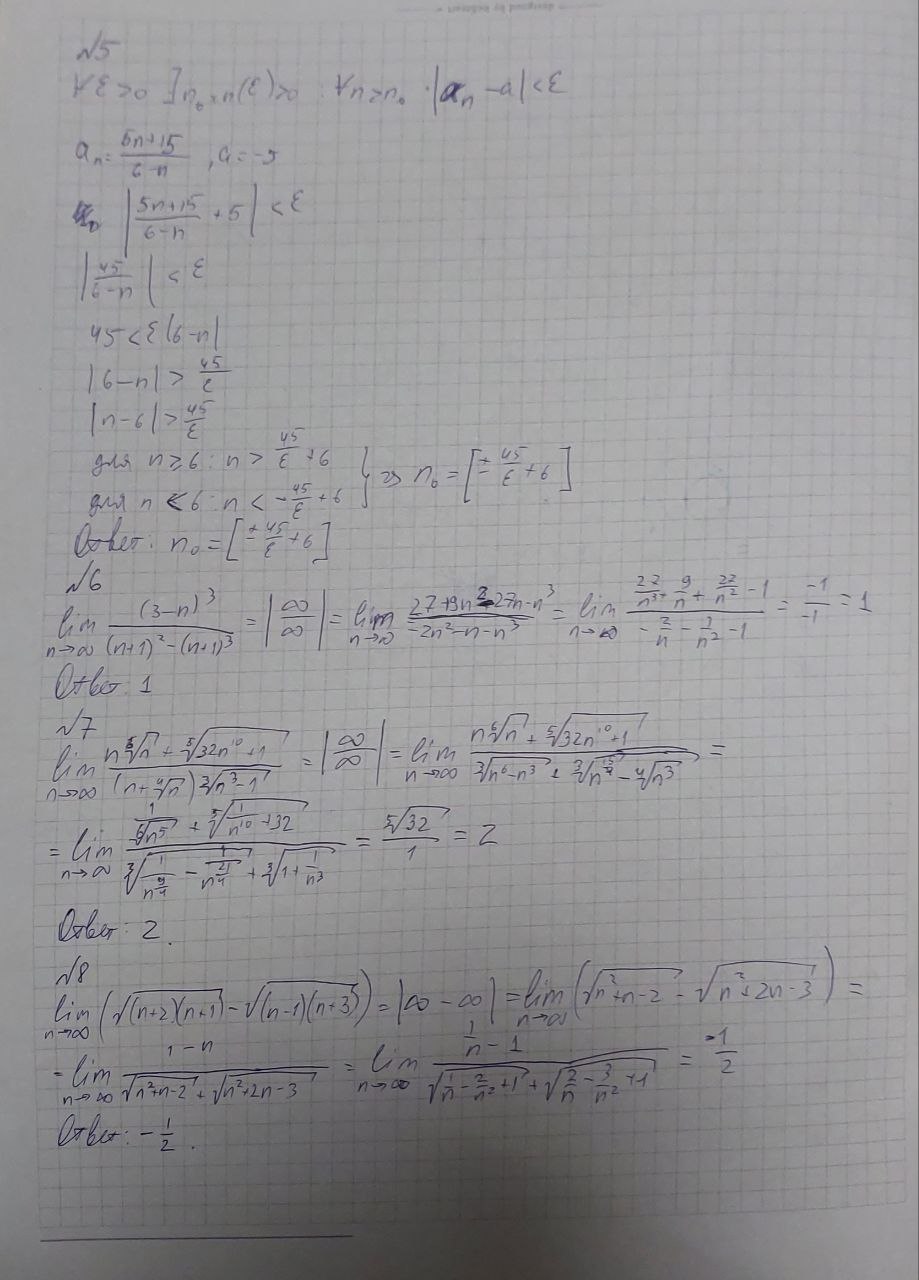 №5
∀ε>0 ∃n₀=n(ε)>0 : ∀n>n₀ : |aₙ - a| < ε
aₙ = (5n+15)/(6-n), a = -5
|(5n+15)/(6-n) + 5| < ε
|45/(6-n)| < ε
45 < ε|6-n|
|6-n| > 45/ε
|n-6| > 45/ε
для n ≥ 6 : n > 45/ε + 6
для n < 6 : n < -45/ε + 6 } => n₀ = [± 45/ε + 6]
Ответ: n₀ = [± 45/ε + 6]
№6
lim n→∞ (3-n)³/((n+1)²-(n+1)³) = |∞/∞| = lim n→∞ (27+9n²-27n-n³)/(-2n²-n-n³) = lim n→∞ (27/n³+9/n+27/n²-1)/(-2/n-1/n²-1) = -1/-1 = 1
Ответ: 1
№7
lim n→∞ (n⁶√n + ⁵√(32n¹⁰+1))/((n+⁴√n)³√(n³-1)) = |∞/∞| = lim n→∞ (n⁶√n + ⁵√(32n¹⁰+1))/(³√(n⁶-n³) + ³√(n^(15/4) - ⁴√n³)) =
= lim n→∞ (1/⁶√n⁵ + ⁵√(1/n¹⁰+32))/(³√(1/n^(9/4) - 1/n^(21/4)) + ³√(1+1/n³)) = ⁵√32/1 = 2
Ответ: 2.
№8
lim n→∞ (√((n+2)(n+1)) - √((n-1)(n+3))) = |∞-∞| = lim n→∞ (√(n²+n-2) - √(n²+2n-3)) =
= lim n→∞ (1-n)/(√(n²+n-2) + √(n²+2n-3)) = lim n→∞ (1/n - 1)/(√(1/n - 2/n² + 1) + √(2/n - 3/n² + 1)) = -1/2
Ответ: -1/2.